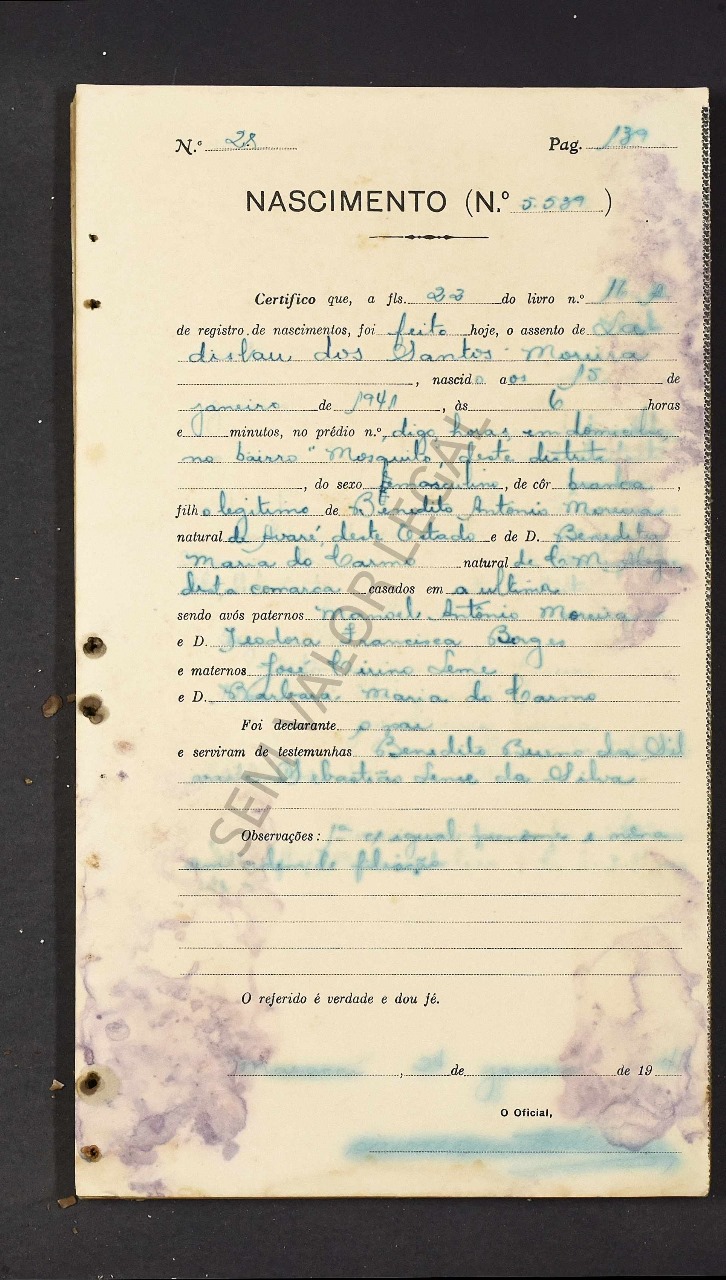 N.º 28 Pag. 139
NASCIMENTO (N.º 5.539)
Certifico que, a fls. 23 do livro n.º 16
de registro de nascimentos, foi feito hoje, o assento de Lad
dislau dos Santos Moreira
, nascido aos 15 de
janeiro de 1941, às 6 horas
e minutos, no prédio n.º, digo horas, em domicilio
no bairro "Mosquito" deste distrito
, do sexo masculino, de côr branca,
filho legitimo de Benedito Antonio Moreira
natural de Avaré, deste Estado e de D. Benedita
Maria do Carmo natural de
desta comarca casados em a ultima
sendo avós paternos Manoel Antônio Moreira
e D. Teodora Francisca Borges
e maternos José Cirino Leme
e D. Barbara Maria do Carmo
Foi declarante o pai
e serviram de testemunhas Benedito Bueno da Sil
Sebastião Leme da Silva
Observações: 1ª
filiação
O referido é verdade e dou fé.
, de de 19
O Oficial,
SEM VALOR LEGAL